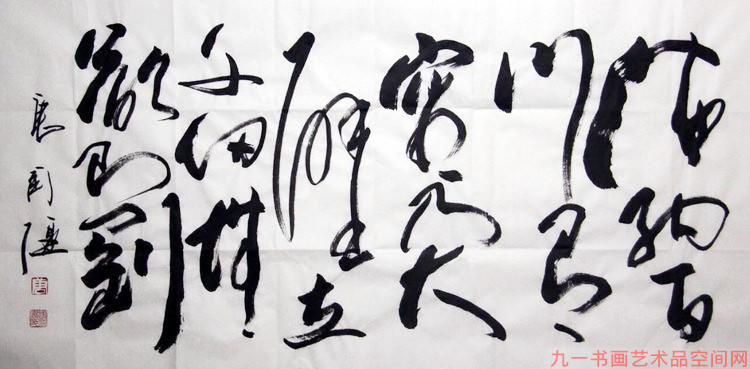 海納百
川有
容乃大
壁立
千仞無
欲则剛
九一书画艺术品空间网